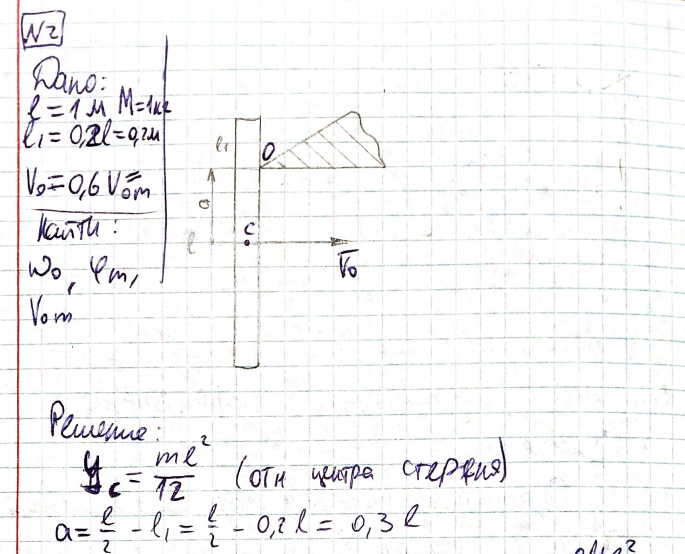 N2
Дано:
l = 1 м M=1кг
l₁ = 0,2l = 0,2м
V₀ = 0,6 V₀m
Найти:
ω₀, φm,
V₀m
l₁
O
a
C
l
V̅₀
Решение:
Jc = ml²/12 (отн центра стержня)
a = l/2 - l₁ = l/2 - 0,2l = 0,3l